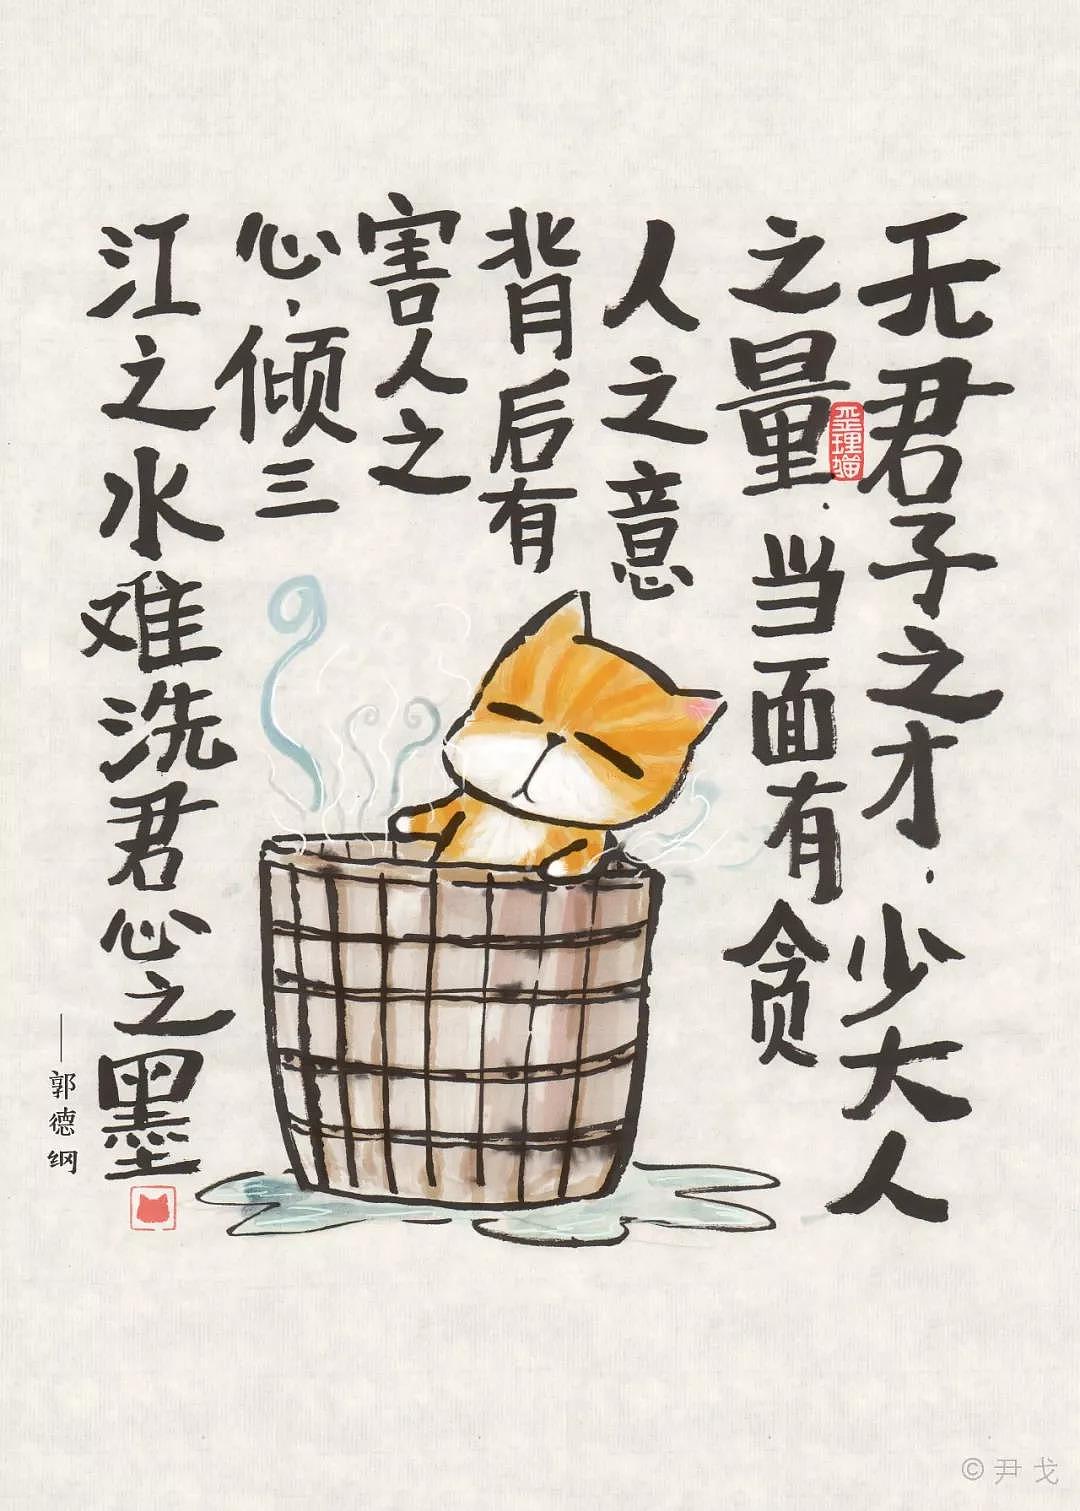 无君子之才.少大人
之量.当面有贪
人之意
背后有
害人之
心.倾三
江之水难洗君心之墨
——郭德纲
歪理猫
©尹戈